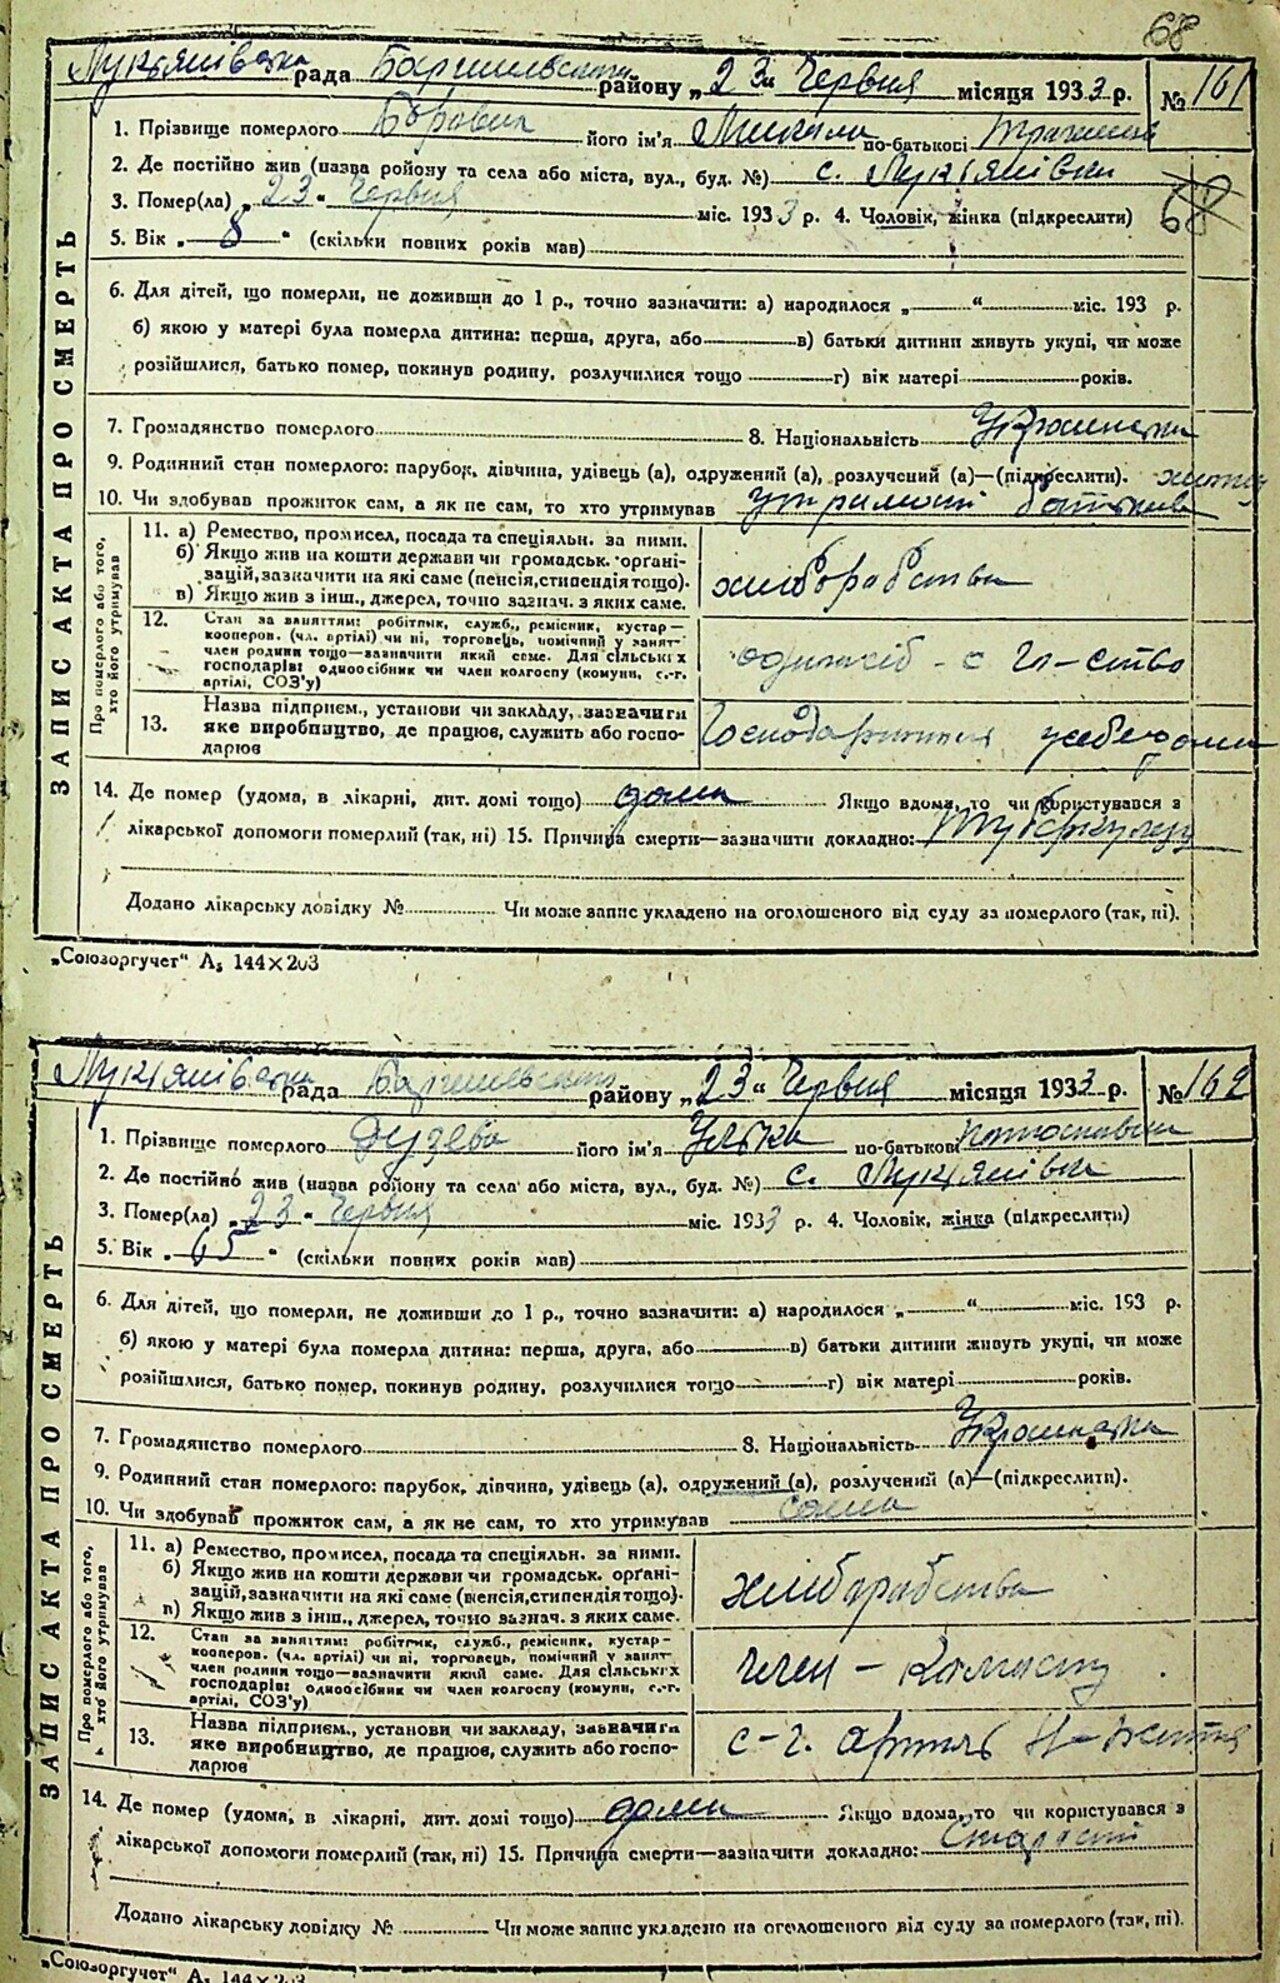 68
Лукʼянівська рада Баришевського району „23“ Червня місяця 1933 р. № 161
1. Прізвище померлого Боровик його імʼя Микола по-батькові
2. Де постійно жив (назва ройону та села або міста, вул., буд. №) с. Лукʼянівки
3. Помер(ла) „23“ Червня міс. 1933 р. 4. Чоловік, жінка (підкреслити) 68
5. Вік „8“ (скільки повних років мав)
6. Для дітей, що померли, не доживши до 1 р., точно зазначити: а) народилося „ “ міс. 193 р.
б) якою у матері була померла дитина: перша, друга, або в) батьки дитини живуть укупі, чи може
розійшлися, батько помер, покинув родину, розлучилися тощо г) вік матері років.
7. Громадянство померлого 8. Національність Українська
9. Родинний стан померлого: парубок, дівчина, удівець (а), одружений (а), розлучений (а)—(підкреслити).
10. Чи здобував прожиток сам, а як не сам, то хто утримував утриманні батьків
ЗАПИС АКТА ПРО СМЕРТЬ
Про померлого або того, хто його утримував
11. а) Ремество, промисел, посада та спеціяльн. за ними.
б) Якщо жив на кошти держави чи громадськ. органі-
зацій, зазначити на які саме (пенсія, стипендія тощо).
в) Якщо жив з інш., джерел, точно зазнач. з яких саме.
хліборобство
12. Стан за заняттям: робітник, служб., ремісник, кустар—
кооперов. (чл. артілі) чи ні, торговець, помічний у занят-
член родини тощо—зазначити який саме. Для сільських
господарів: одноосібник чи член колгоспу (комуни, с.-г.
артілі, СОЗʼу)
одноосіб - с гос-ство
13. Назва підприєм., установи чи закладу, зазначити
яке виробництво, де працює, служить або госпо-
дарює
14. Де помер (удома, в лікарні, дит. домі тощо) дома Якщо вдома, то чи користувався з
лікарської допомоги померлий (так, ні) 15. Причина смерти—зазначити докладно: Туберкульоз
Додано лікарську довідку № Чи може запис укладено на оголошеного від суду за померлого (так, ні).
„Союзоргучет“ А₅ 144×203
Лукʼянівська рада Баришевського району „23“ Червня місяця 1933 р. № 162
1. Прізвище померлого його імʼя Улька по-батькові
2. Де постійно жив (назва ройону та села або міста, вул., буд. №) с. Лукʼянівки
3. Помер(ла) „23“ Червня міс. 1933 р. 4. Чоловік, жінка (підкреслити)
5. Вік „65“ (скільки повних років мав)
6. Для дітей, що померли, не доживши до 1 р., точно зазначити: а) народилося „ “ міс. 193 р.
б) якою у матері була померла дитина: перша, друга, або в) батьки дитини живуть укупі, чи може
розійшлися, батько помер, покинув родину, розлучилися тощо г) вік матері років.
7. Громадянство померлого 8. Національність Українська
9. Родинний стан померлого: парубок, дівчина, удівець (а), одружений (а), розлучений (а)—(підкреслити).
10. Чи здобував прожиток сам, а як не сам, то хто утримував сама
ЗАПИС АКТА ПРО СМЕРТЬ
Про померлого або того, хто його утримував
11. а) Ремество, промисел, посада та спеціяльн. за ними.
б) Якщо жив на кошти держави чи громадськ. органі-
зацій, зазначити на які саме (пенсія, стипендія тощо).
в) Якщо жив з інш., джерел, точно зазнач. з яких саме.
хліборобство
12. Стан за заняттям: робітник, служб., ремісник, кустар—
кооперов. (чл. артілі) чи ні, торговець, помічний у занят-
член родини тощо—зазначити який саме. Для сільських
господарів: одноосібник чи член колгоспу (комуни, с.-г.
артілі, СОЗʼу)
член - колгоспу
13. Назва підприєм., установи чи закладу, зазначити
яке виробництво, де працює, служить або госпо-
дарює
с-г. артіль Н-життя
14. Де помер (удома, в лікарні, дит. домі тощо) дома Якщо вдома, то чи користувався з
лікарської допомоги померлий (так, ні) 15. Причина смерти—зазначити докладно: Старости
Додано лікарську довідку № Чи може запис укладено на оголошеного від суду за померлого (так, ні).
„Союзоргучет“ А₅ 144×203